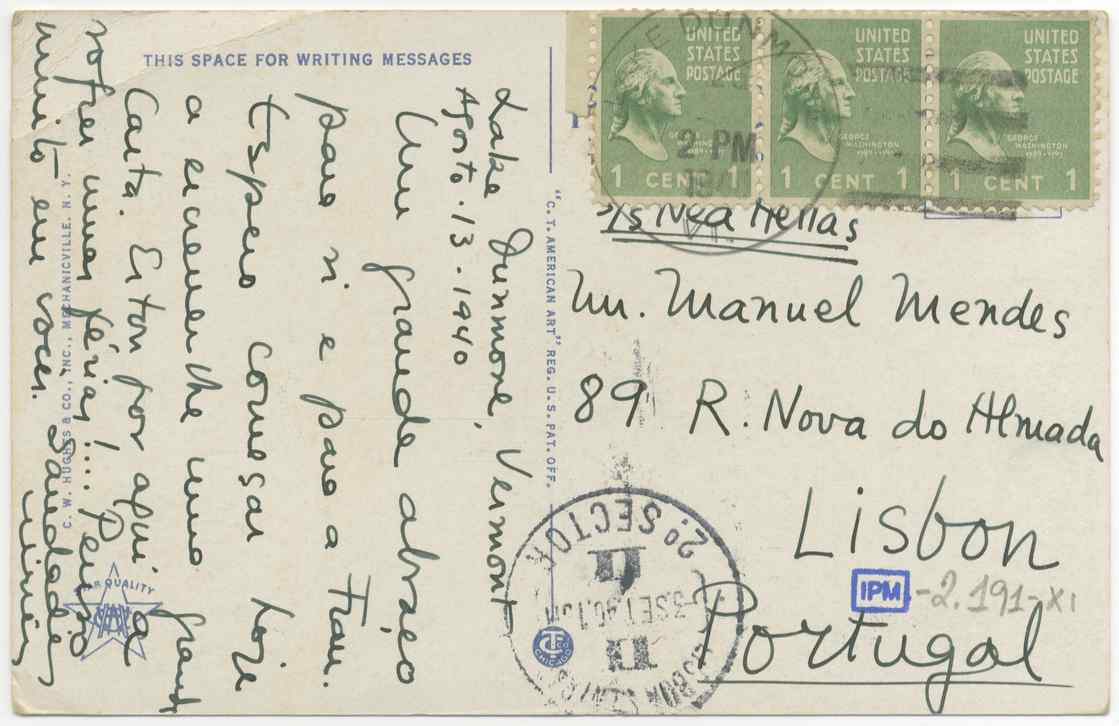 THIS SPACE FOR WRITING MESSAGES
Lake Dunmore, Vermont
Agosto-13-1940
Um grande abraço
para si e para a Frau.
Espero começar hoje
a escrever-lhe uma grande
Carta. Estou por aqui a
sofrer umas férias!... Penso
muito em voces. Saudades
C. W. HUGHES & CO., INC., MECHANICVILLE, N. Y.
"C. T. AMERICAN ART" REG. U. S. PAT. OFF.
CHICAGO
UNITED STATES POSTAGE
GEORGE WASHINGTON
1789-1797
1 CENT 1
UNITED STATES POSTAGE
GEORGE WASHINGTON
1789-1797
1 CENT 1
UNITED STATES POSTAGE
GEORGE WASHINGTON
1789-1797
1 CENT 1
2 PM
S/s Nea Hellas
Mr. Manuel Mendes
89 R. Nova do Almada
Lisbon
Portugal
IPM -2.191-XI
2º. SECTOR